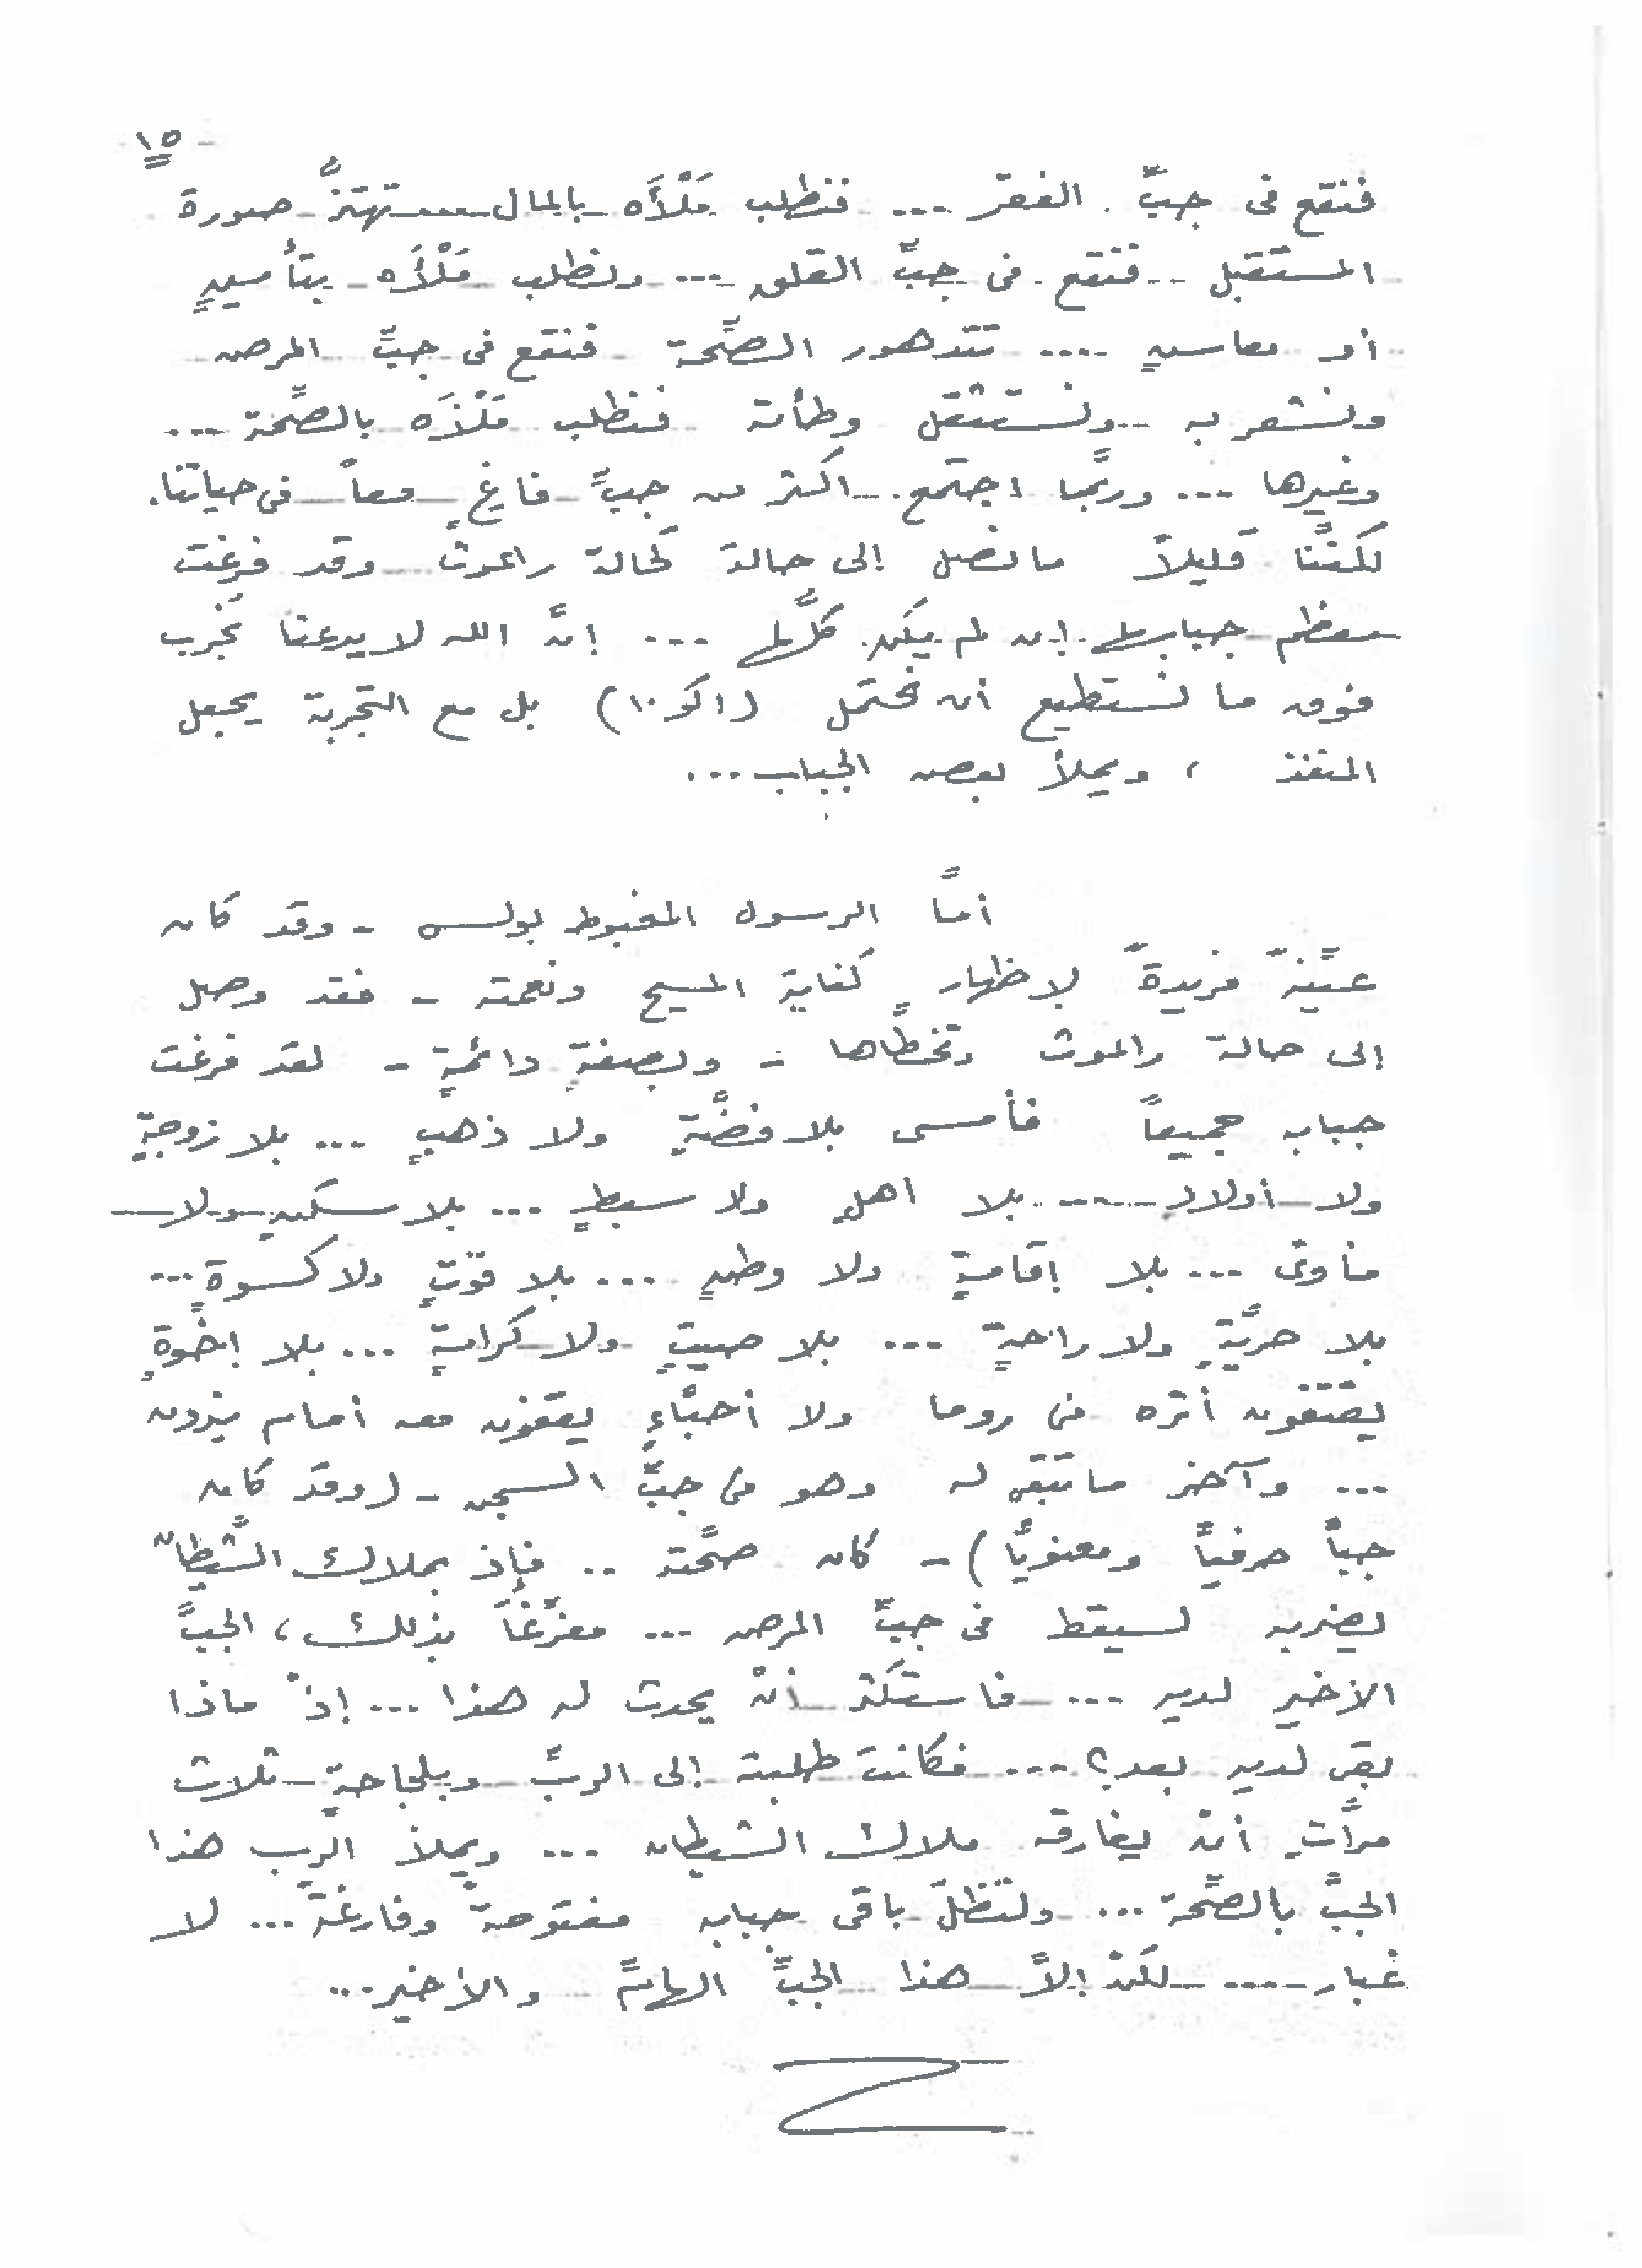 ١٥
فنقع فى جبِّ الفقر ... فنطلب مَلْأَه بالمال .... تهتزُّ صورة
المستقبل .. فنقع فى جبِّ القلق ... ونطلب مَلْأَه بتأمينٍ
أو معاشٍ .... تتدهور الصِّحة فنقع فى جبِّ المرض
ونشعر به .. ونستثقل وطأته فنطلب مَلْأَه بالصِّحة ...
وغيرها ... وربَّما اجتمع .. اكثر من جبٍّ فارغٍ معاً فى حياتنا.
لكنَّنا قليلاً ما نصل إلى حالة كحالة راعوث وقد فرغت
معظم جبابها إن لم يكن كلَّها ... إنَّ الله لا يدعنا نُجَرب
فوق ما نستطيع أن نحتمل (١كو ١٠) بل مع التجربة يجعل
المنفذ ، ويملأ بعض الجباب ...
أمَّا الرسول المغبوط بولس - وقد كان
عيِّنةً فريدةً لإظهارِ كفاية المسيح ونعمته - فقد وصل
إلى حالة راعوث وتخطَّاها - وبصفةٍ دائمةٍ - لقد فرغت
جبابه جميعاً فأمسى بلا فضَّةٍ ولا ذهبٍ ... بلا زوجةٍ
ولا أولادٍ .... بلا أهلٍ ولا سبطٍ ... بلا سكنٍ ولا
مأوىً ... بلا إقامةٍ ولا وطنٍ ... بلا قوتٍ ولا كسوةٍ ...
بلا حرِّيَّةٍ ولا راحةٍ ... بلا صيتٍ ولا كرامةٍ ... بلا إخوةٍ
يقتفون أثره فى روما ولا أحبَّاءٍ يقفون معه أمام نيرون
... وآخر ما تبقى له وهو فى جبِّ السجن - (وقد كان
جباً حرفياً ومعنويًّا) - كان صحَّته .. فإذ بملاك الشَّيطان
يضربه ليسقط فى جبِّ المرض ... مفرِّغاً بذلك، الجبَّ
الأخير لديه ... فاستكثر أنْ يحدث له هذا ... إذْ ماذا
بقى لديه بعد؟ .... فكانت طلبته إلى الربِّ وبلجاجةٍ ثلاث
مرَّاتٍ أنْ يفارقه ملاك الشيطان ... ويملأ الرب هذا
الجبَّ بالصِّحة ... ولتظلَّ باقى جبابه مفتوحةً وفارغةً ... لا
غبار .... لكنْ إلاَّ هذا الجبَّ الهامَّ والأخير ...